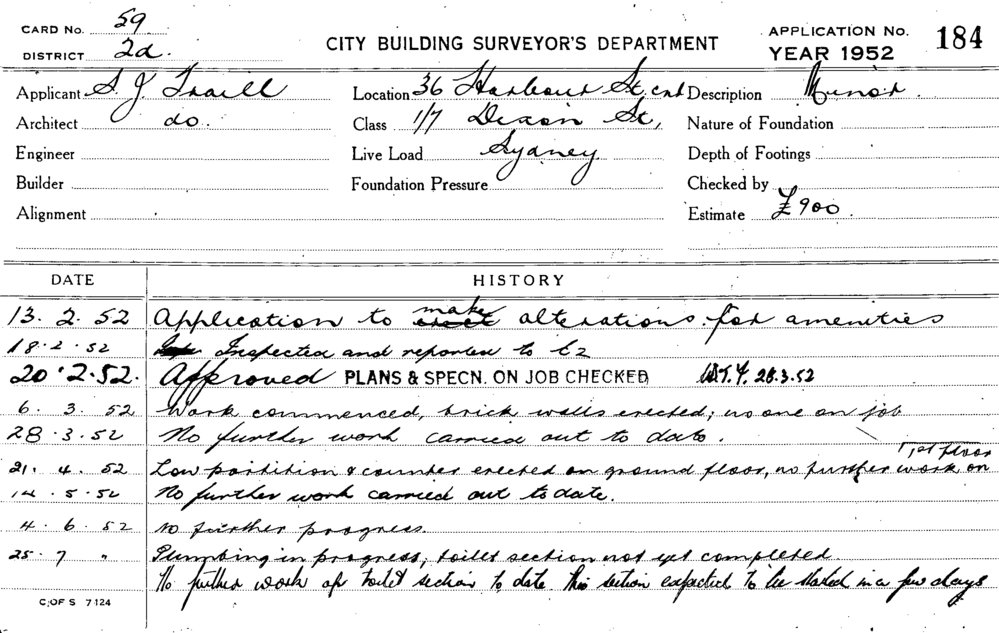 CARD No. 59
DISTRICT 2d.
CITY BUILDING SURVEYOR'S DEPARTMENT
APPLICATION No. 184
YEAR 1952
Applicant S. J. Traill Location 36 Harbour St. cnr Description Minor.
Architect do. Class 1/7 Dixon St, Nature of Foundation
Engineer Live Load Sydney Depth of Footings
Builder Foundation Pressure Checked by
Alignment Estimate £900.
DATE HISTORY
13. 2. 52 Application to erect make alterations for amenities
18. 2. 52 Inspected and reported to
20. 2. 52. Approved PLANS & SPECN. ON JOB CHECKED 28.3.52
6. 3. 52 Work commenced, brick walls erected; no one on job
28. 3. 52 No further work carried out to date.
21. 4. 52 Low partition & counter erected on ground floor, no further work on 1st floor
14. 5. 52 No further work carried out to date.
4. 6. 52 No further progress.
25. 7 " Plumbing in progress, toilet section not yet completed.
No further work of toilet section to date. This section expected to be started in a few days
C. OF S 7124